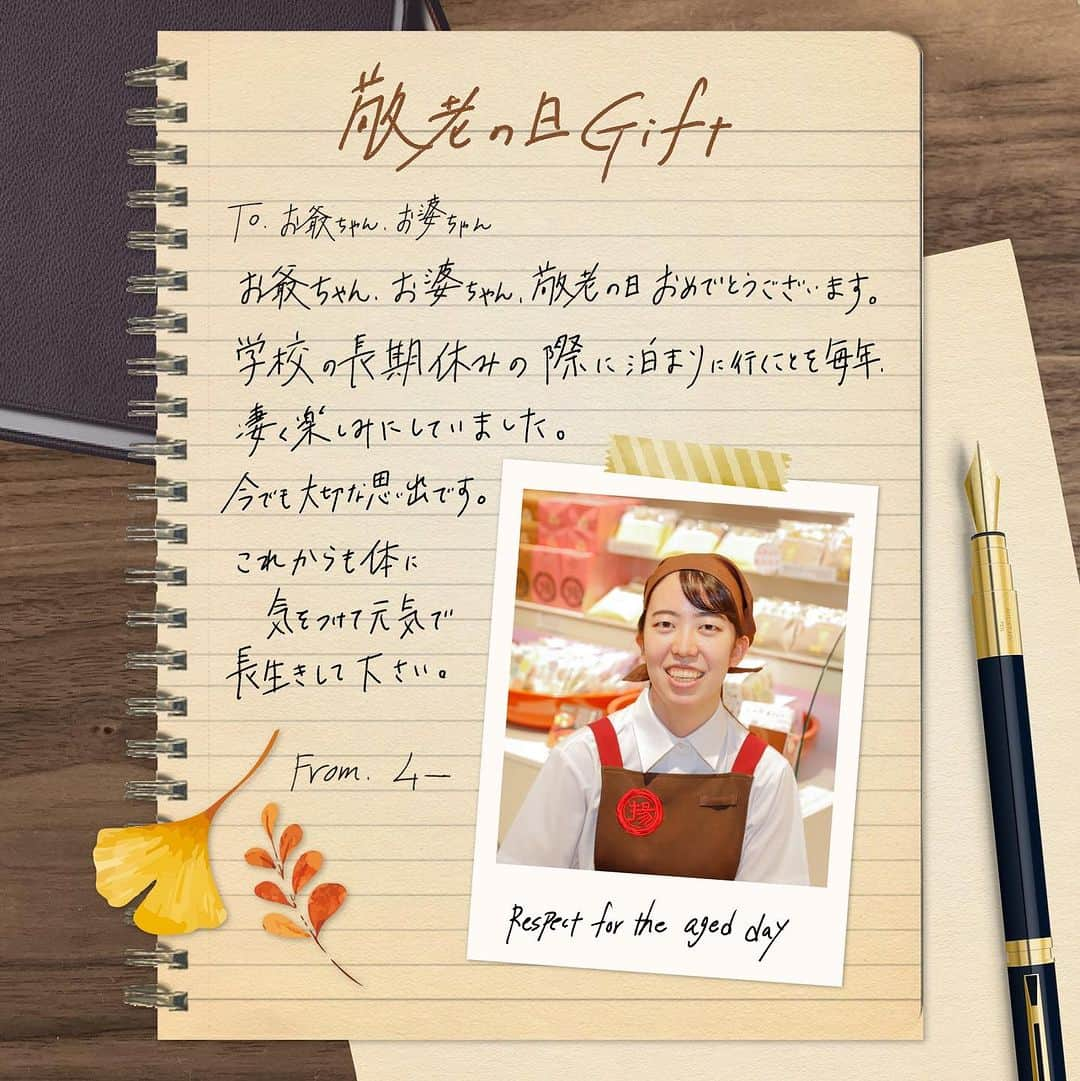 敬老の日Gift
To. お爺ちゃん、お婆ちゃん
お爺ちゃん、お婆ちゃん、敬老の日おめでとうございます。
学校の長期休みの際に泊まりに行くことを毎年、
凄く楽しみにしていました。
今でも大切な思い出です。
これからも体に
気をつけて元気で
長生きして下さい。
From. ムー
揚
Respect for the aged day